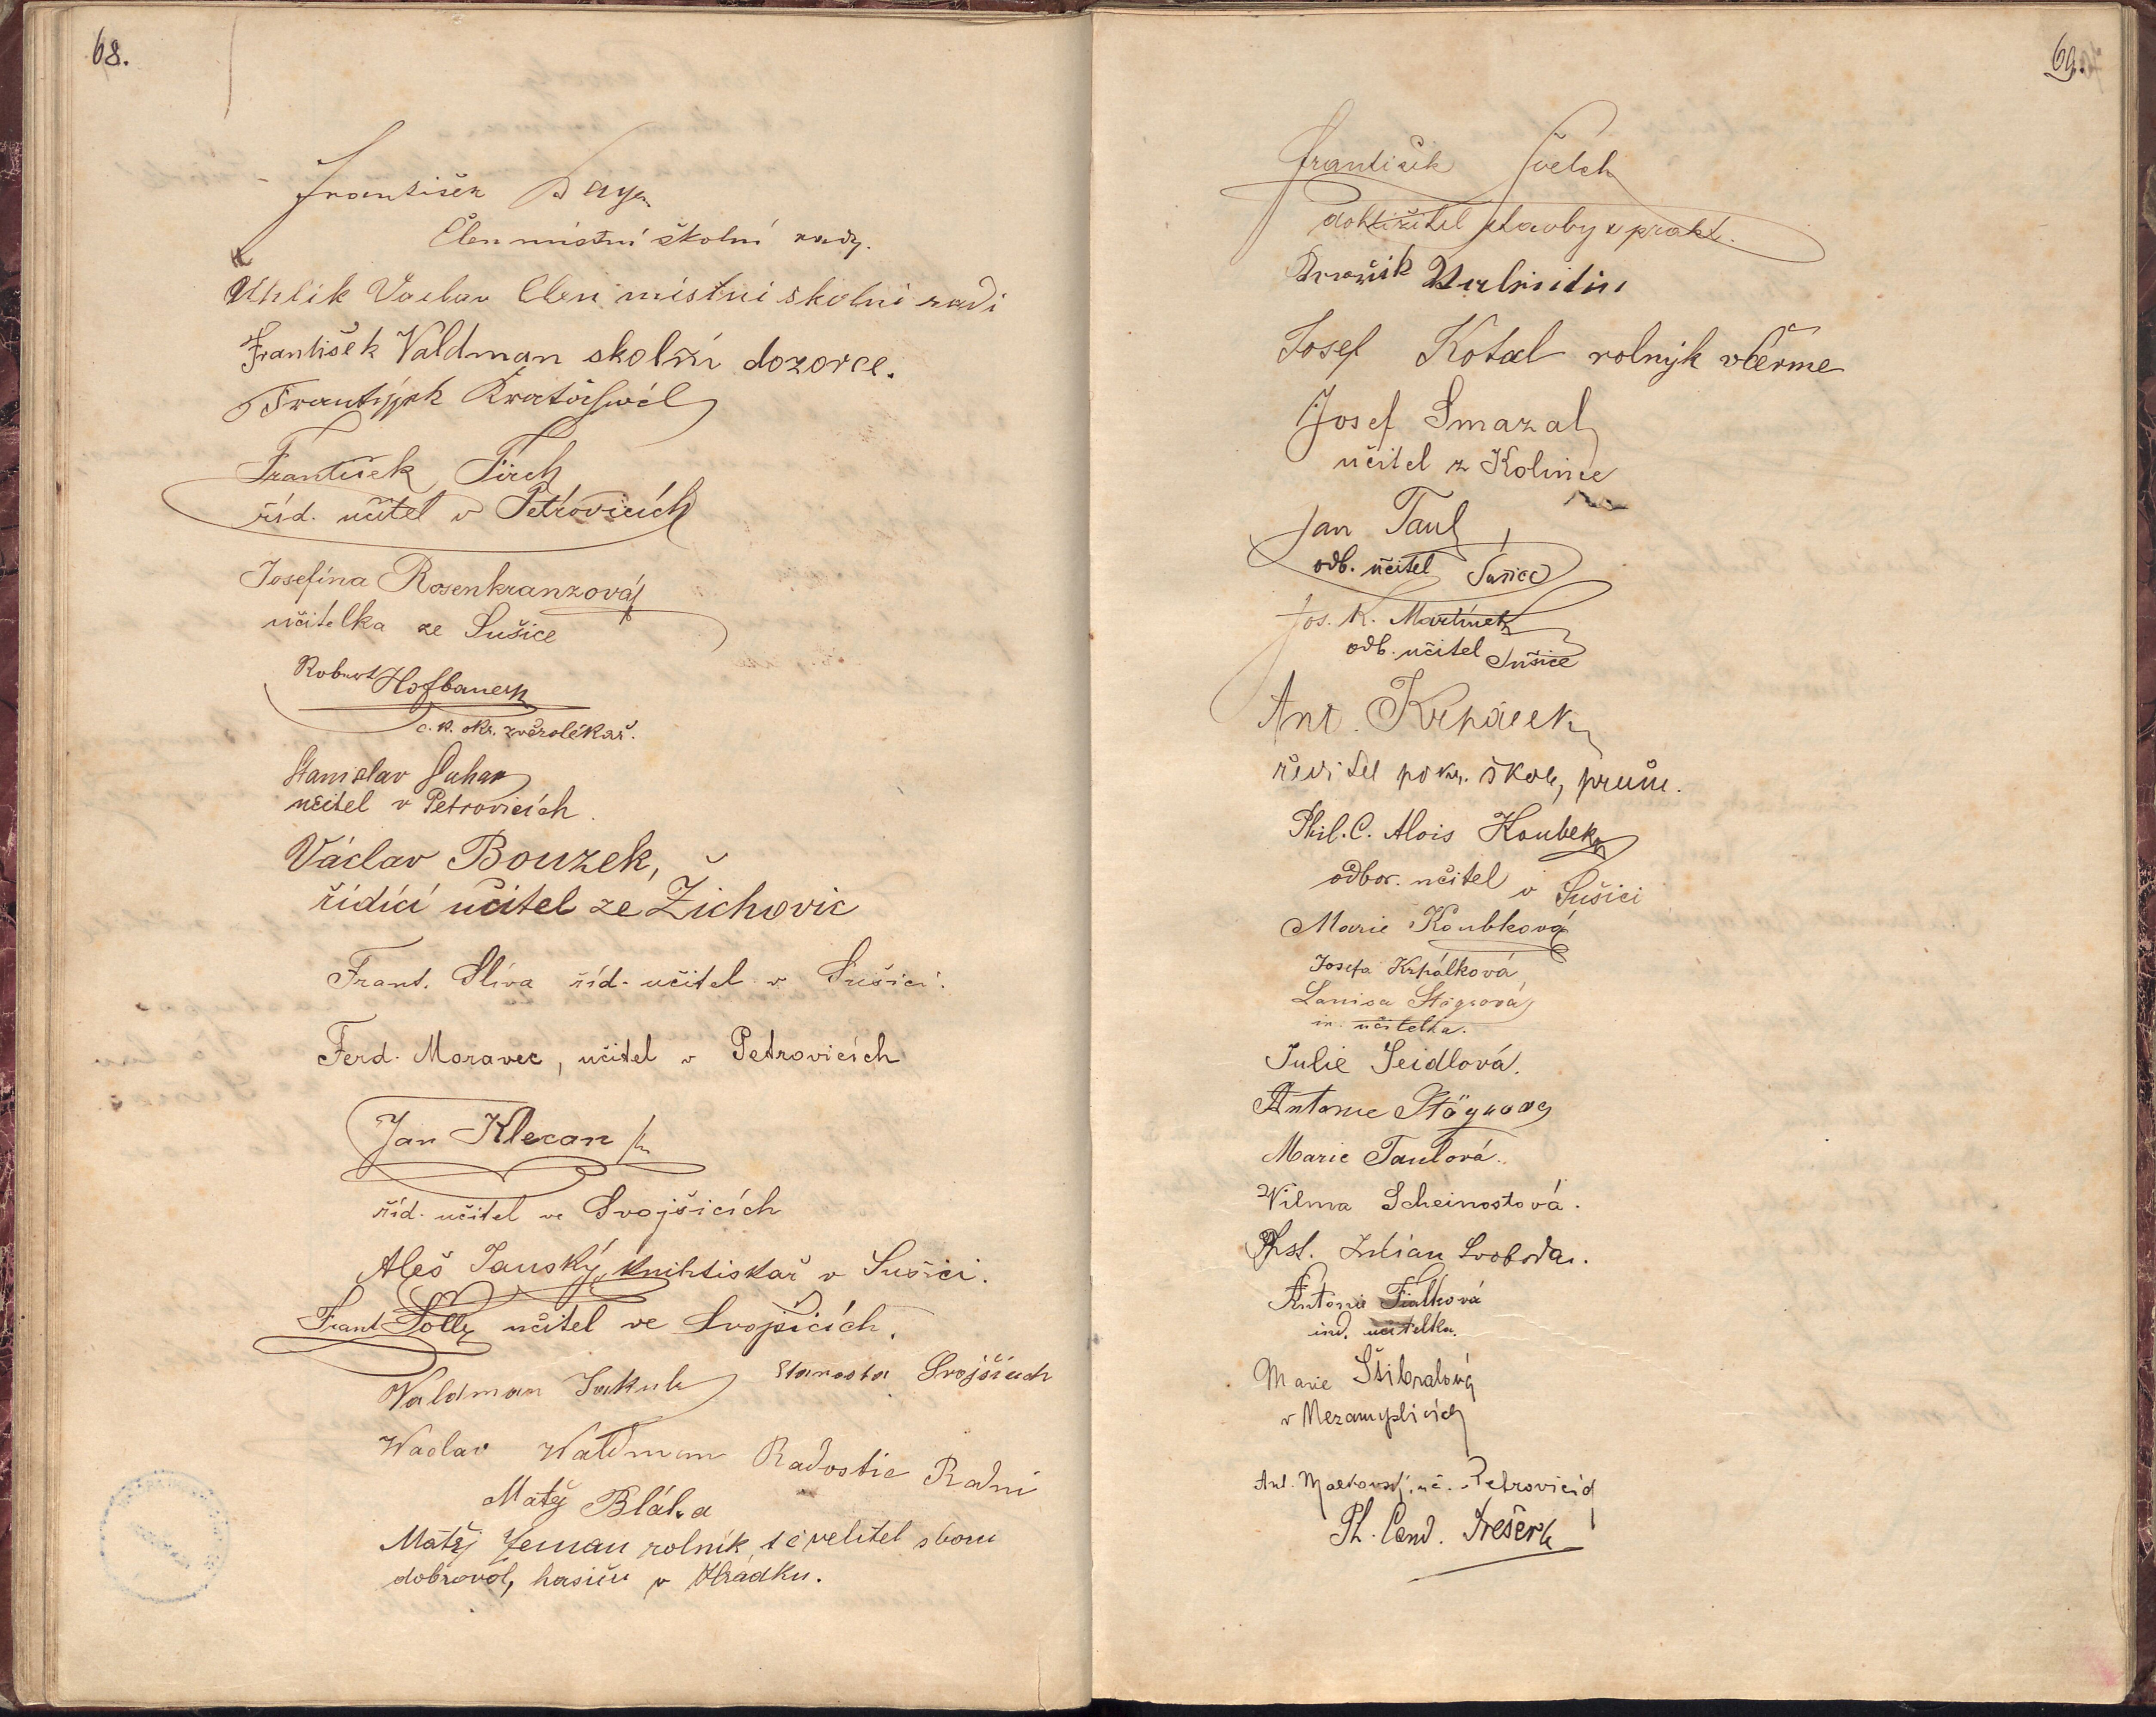 68.
František
Člen místní školní rady.
Uhlik Václav Clen mistni skolni radi
František Valdman skolní dozorce.
František Firch
říd. učitel v Petrovicích
Josefína Rosenkranzová
učitelka ze Sušice
Robert Hofbauer
c. k. okr. zvěrolékař.
Stanislav Suhan
učitel v Petrovicích.
Václav Bouzek,
řídící učitel ze Žichovic
Frant. Slíva říd. učitel v Sušici.
Ferd. Moravec, učitel v Petrovicích
Jan Klecan
říd. učitel ve Svojšicích
Aleš Janský, knihtiskař v Sušici.
Frant učitel ve Svojšicích.
Waldman Jakub Starosta Svojšicch
Waclav Waldman Radostic Radni
Matěj Bláha
Matěj Zeman rolník, velitel sboru
dobrovol, hasičů v Hrádku.
69.
František Švelch
stavby prakt.
Josef Kotal rolnýk
Josef Smazal
učitel z Kolince
Jan Taul
odb. učitel Sušice
Jos. K. Martínek
odb. učitel Sušice
Ant.
ředitel škole,
Phil. C. Alois Koubek
odbor. učitel v Sušici
Marie Koubková
Josefa Krpálková
učitelka.
Julie Seidlová.
Antonie
Marie Taulová.
Vilma Scheinostová.
Julian Svoboda.
Antonie Fialková
ind. učitelka.
Marie Štibralová
v
Ant. uč. Petrovicích
Ph. Cand.